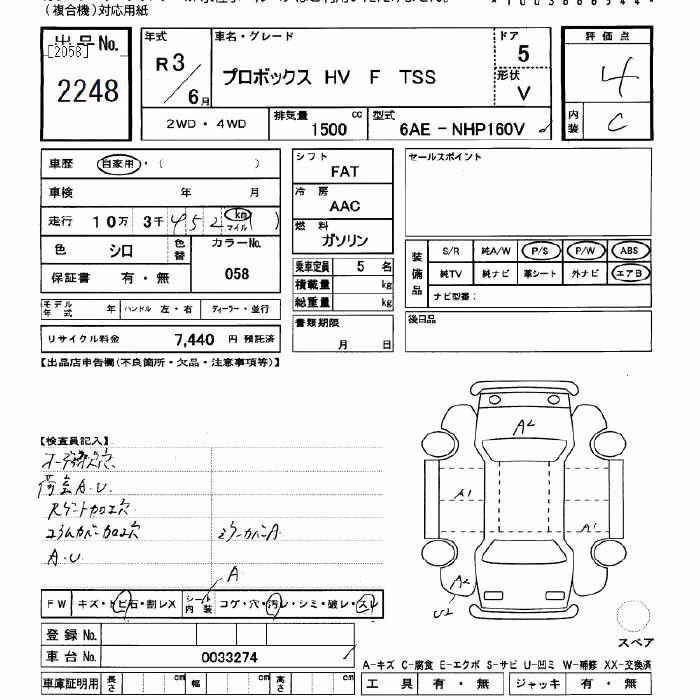 （複合機）対応用紙
出品No.
[2058]
2248
年式
R3/6月
車名・グレード
プロボックス HV F TSS
ドア
5
形状
V
2WD・4WD
排気量 cc
1500
型式
6AE-NHP160V
評価点
4
内装
C
車歴 自家用・( )
車検 年 月
走行 10万 3千 452 km マイル ( )
色 シロ
色替
カラーNo.
058
保証書 有・無
モデル年式 年 ハンドル 左・右 ディーラー・並行
リサイクル料金 7,440 円 預託済
シフト
FAT
冷房
AAC
燃料
ガソリン
乗車定員 5 名
積載量 kg
総重量 kg
書類期限
月 日
セールスポイント
装備品
S/R 純A/W P/S P/W ABS
純TV 純ナビ 革シート 外ナビ エアB
ナビ型番：
後日品
【出品店申告欄(不良箇所・欠品・注意事項等)】
【検査員記入】
荷室A.U.
スゲート加工穴
コラムカバー加工穴
ミラーカバーA
A.U.
A
FW キズ・トビ石・割レX
シート内装 コゲ・穴・汚レ・シミ・破レ・スレ
登録No.
車台No. 0033274
車庫証明用 長さ cm 幅 cm 高さ cm
A2
A1
A1
A2
U2
スペア
A-キズ C-腐食 E-エクボ S-サビ U-凹ミ W-補修 XX-交換済
工具 有・無 ジャッキ 有・無